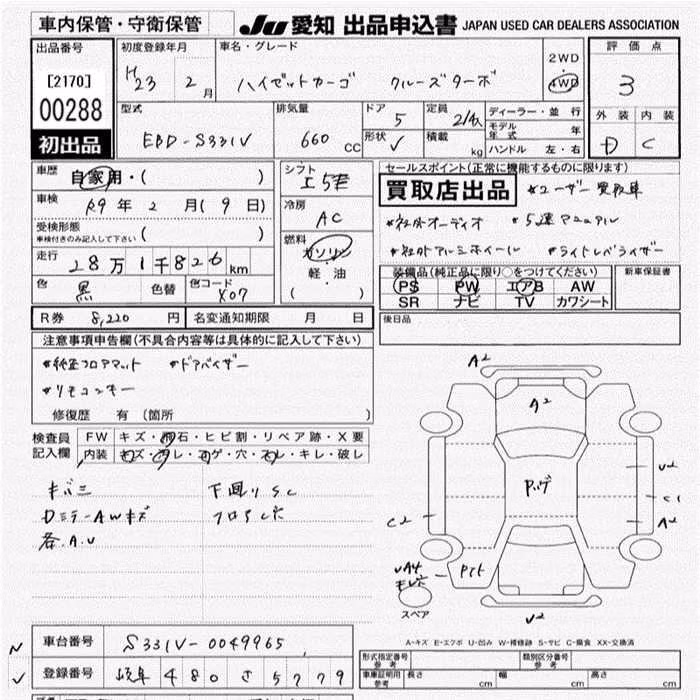 車内保管・守衛保管 JU 愛知 出品申込書 JAPAN USED CAR DEALERS ASSOCIATION
出品番号 初度登録年月 車名・グレード 2WD 評価点
[2170] H23 2月 ハイゼットカーゴ クルーズターボ 4WD 3
00288 型式 排気量 ドア 5 定員 2/4人 ディーラー・並行 外装 内装
初出品 EBD-S331V 660 CC 形状 V 積載 kg モデル年式 年 D C
ハンドル 左・右
車歴 自家用・( ) シフト I 5速 セールスポイント(正常に機能するものに限ります)
車検 R9年 2月(9日) 冷房 AC 買取店出品 *ユーザー買取車
受検形態 ( ) *社外オーディオ *5速マニュアル
車検付きのみ記入して下さい
燃料 ガソリン *社外アルミホイール *ライトレベライザー
走行 28万1千826km 軽・油 装備品(純正品に限り○をつけてください) 新車保証書
色 黒 色替 色コード X07 ( ) PS PW エアB AW
SR ナビ TV カワシート
R券 8,220円 名変通知期限 月 日 後日品
注意事項申告欄(不具合内容等は具体的に記入して下さい)
*純正フロアマット *ドアバイザー
*リモコンキー
修復歴 有(箇所 )
検査員記入欄 FW キズ・飛石・ヒビ割・リペア跡・X要
内装 キズ・汚レ・コゲ・穴・スレ・キレ・破レ
キバミ 下廻りSC
Dミラー・AWキズ フロアSC
各.A.U
A2
A2
P.ルーフ
U2
C1
C2 A2
UA4
スペア
U2
A-キズ E-エクボ U-凹み W-補修跡 S-サビ C-腐食 XX-交換済
車台番号 S331V-0049965
形式指定番号 参考 類別区分番号 参考
登録番号 岐阜 480 さ 5779
車庫証明用 参考 長さ cm 幅 cm 高さ cm